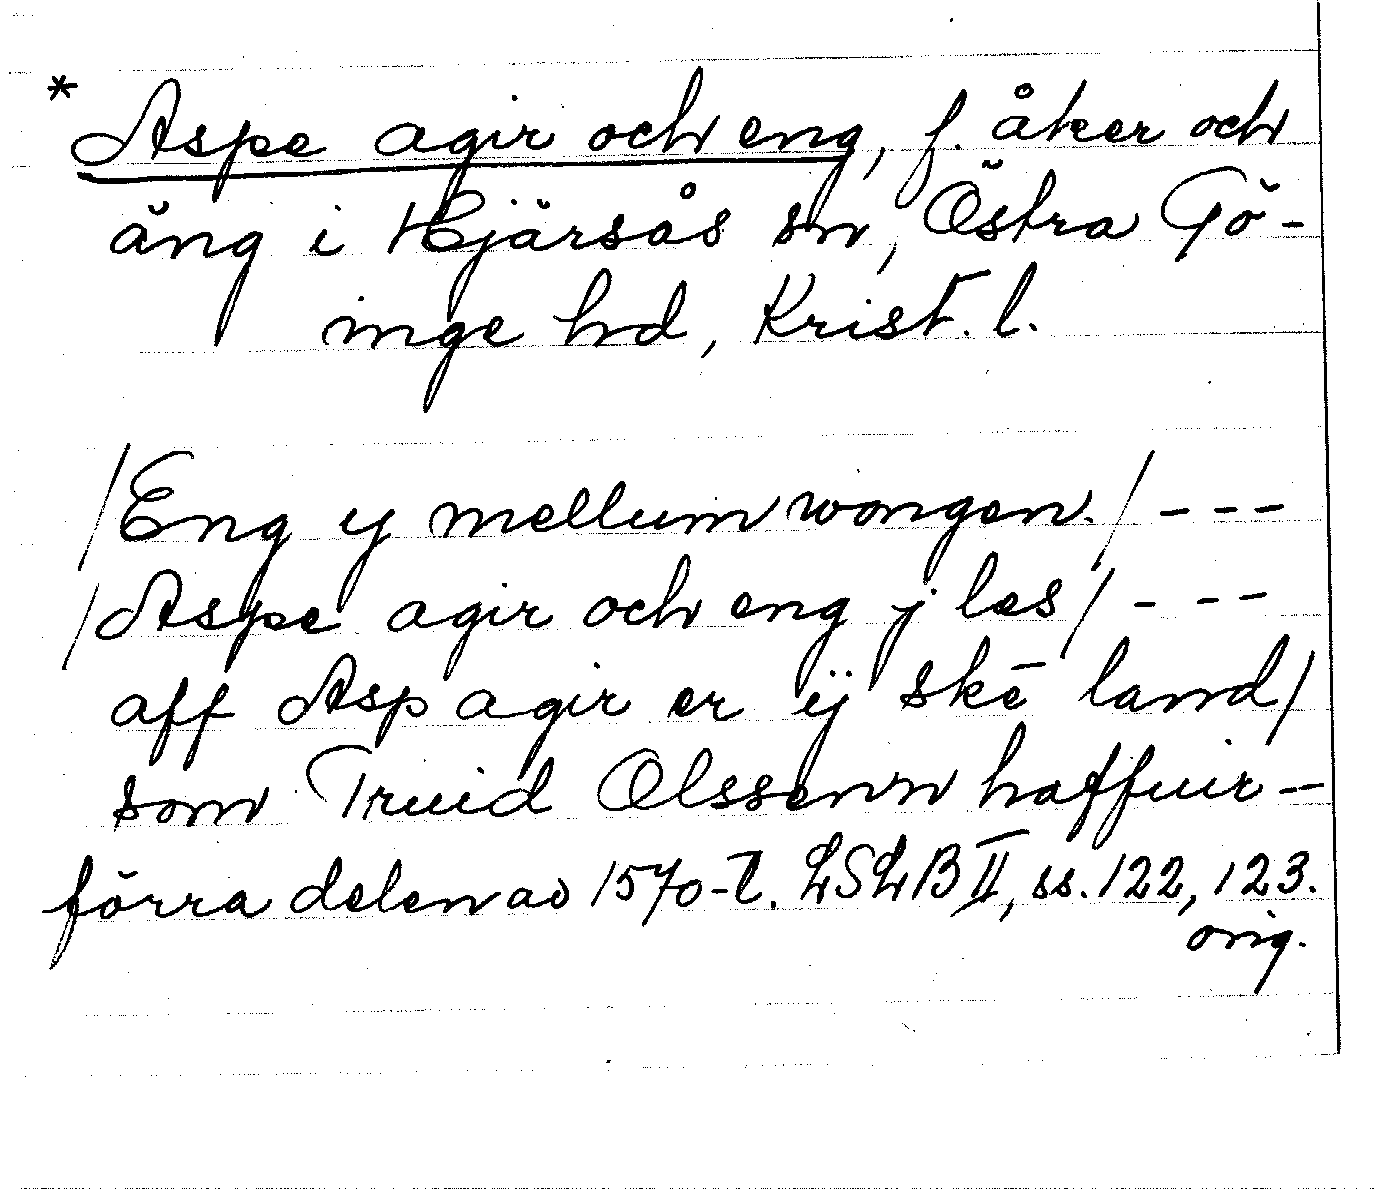 * Aspe agir och eng, f. åker och
äng i Hjärsås sn, Östra Gö-
inge hd, Krist. l.
/Eng y mellum wongen./ - - -
/Aspe agir och eng j les/ - - -
aff Asp agir er ij skē land/
som Truid Olssenn haffuir -
förra delen av 1570-t. LSLB II, ss. 122, 123.
orig.